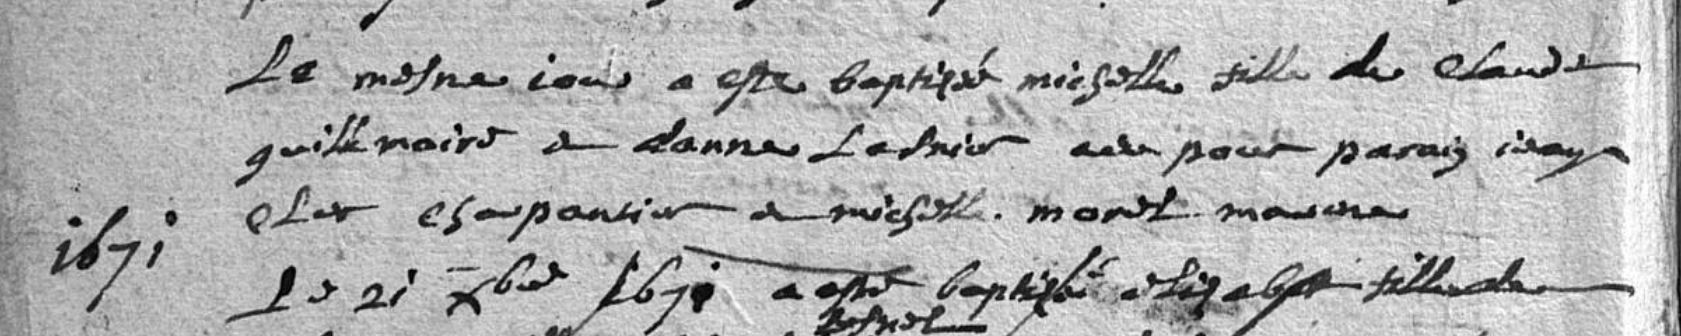 Le mesme iour a este baptizé michelle fille de Claude
guillemoire et danne Ladnier a eu pour parain iean
Cler Charpantier et michelle morel maraine
1671
Le 21 xbre 1671 a esté baptizée elizabeth fille de